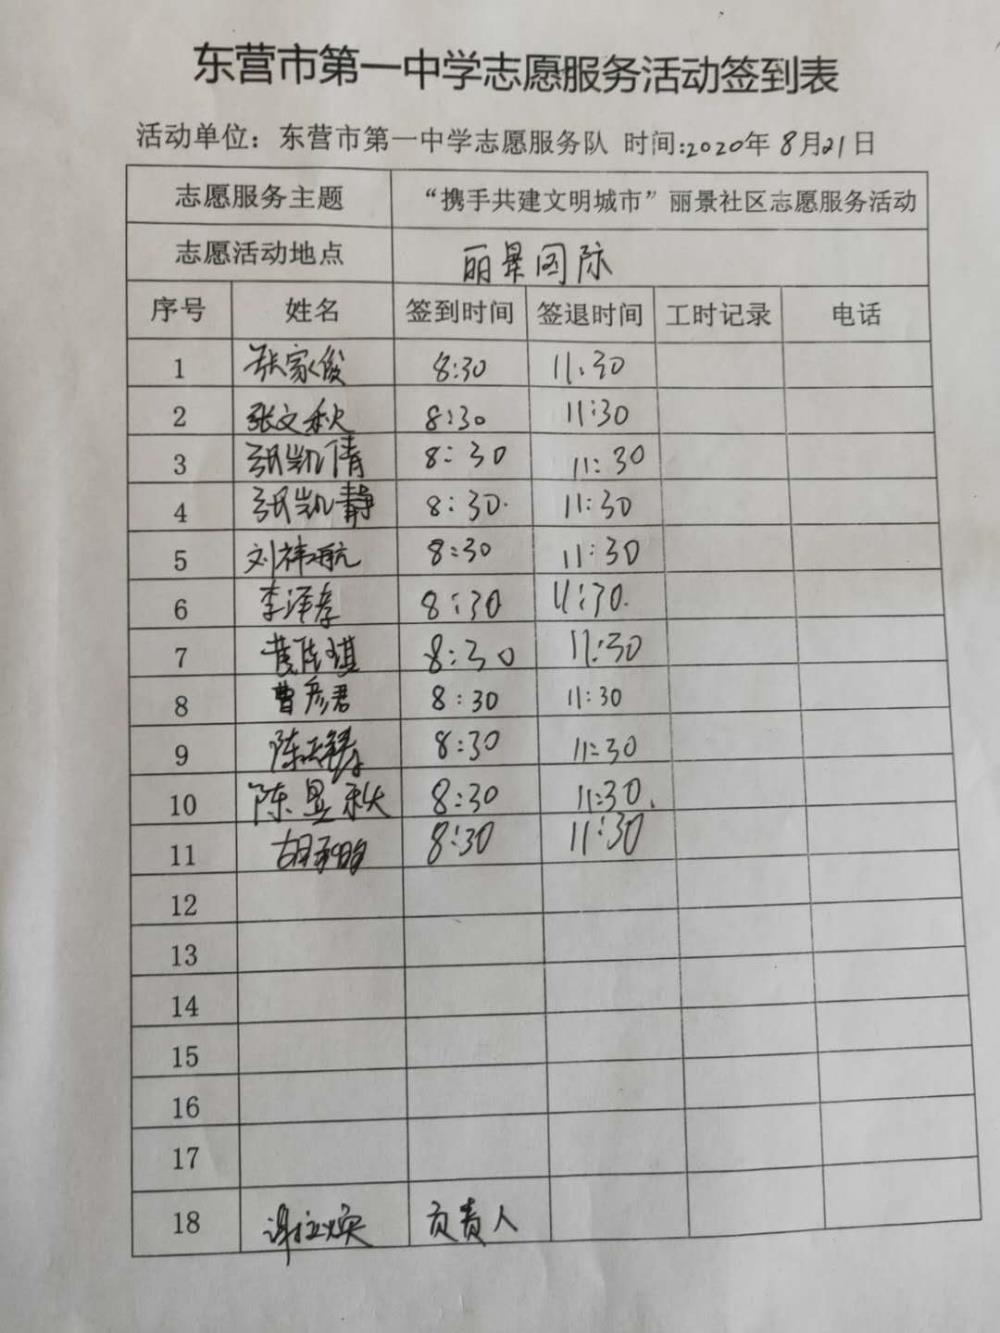 东营市第一中学志愿服务活动签到表
活动单位：东营市第一中学志愿服务队 时间:2020年8月21日
志愿服务主题 “携手共建文明城市”丽景社区志愿服务活动
志愿活动地点 丽景国际
序号 姓名 签到时间 签退时间 工时记录 电话
1 张家俊 8:30 11.30
2 张文秋 8:30 11:30
3 张凯倩 8:30 11:30
4 张凯静 8:30. 11:30
5 刘祎航 8:30 11:30
6 李泽孝 8:30 11:30.
7 8:30 11:30
8 曹彦君 8:30 11:30
9 8:30 11:30
10 陈昱秋 8:30 11:30.
11 8:30 11:30
12
13
14
15
16
17
18 负责人